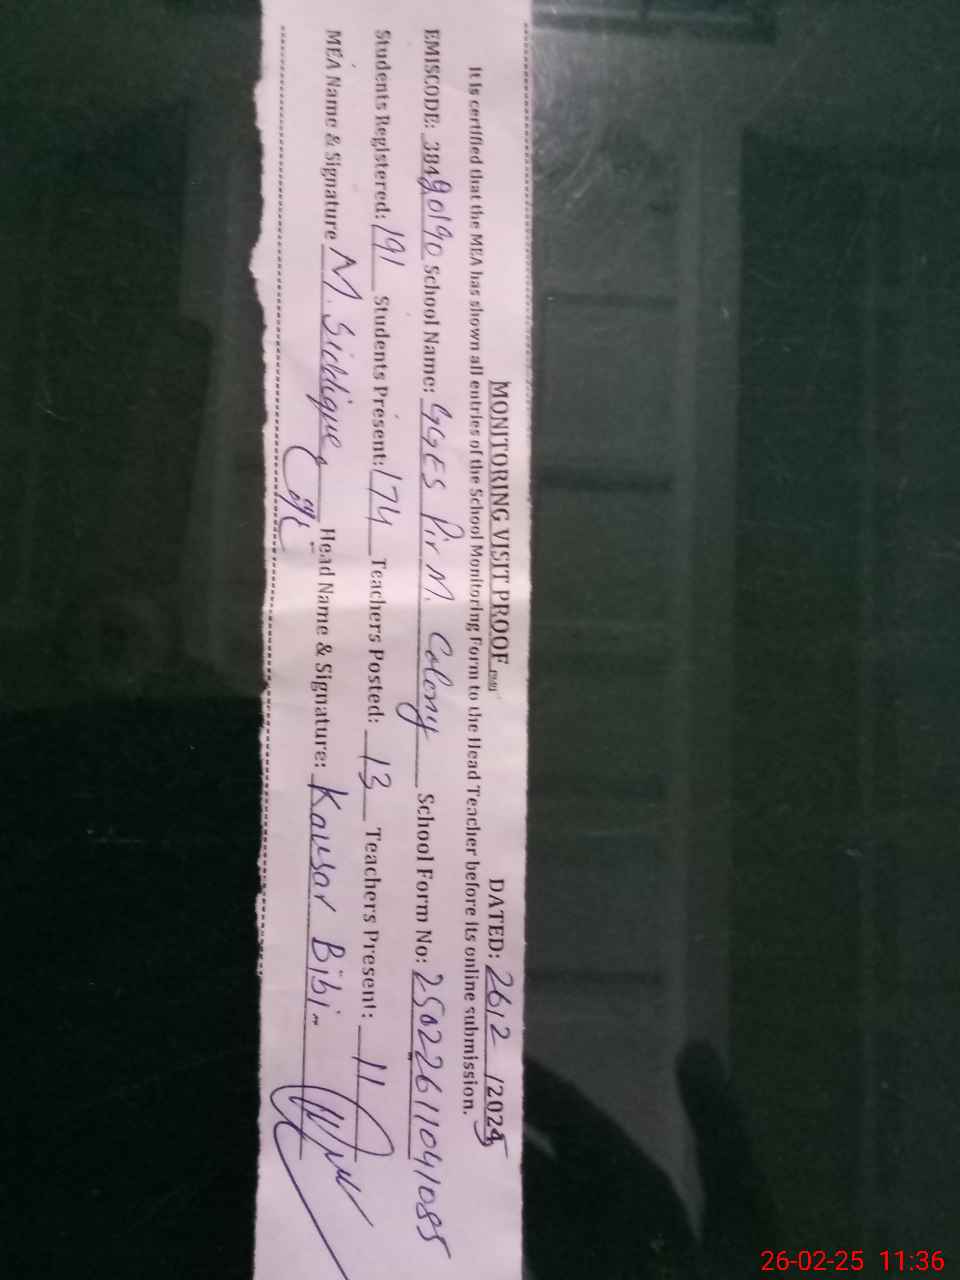 MONITORING VISIT PROOF DATED: 26/2/2025
It is certified that the MEA has shown all entries of the School Monitoring Form to the Head Teacher before its online submission.
EMISCODE: 38490190 School Name: GGES Pir M. Colony School Form No: 25022611041085
Students Registered: 191 Students Present: 174 Teachers Posted: 13 Teachers Present: 11
MEA Name & Signature M. Siddique Head Name & Signature: Kausar Bibi
26-02-25 11:36